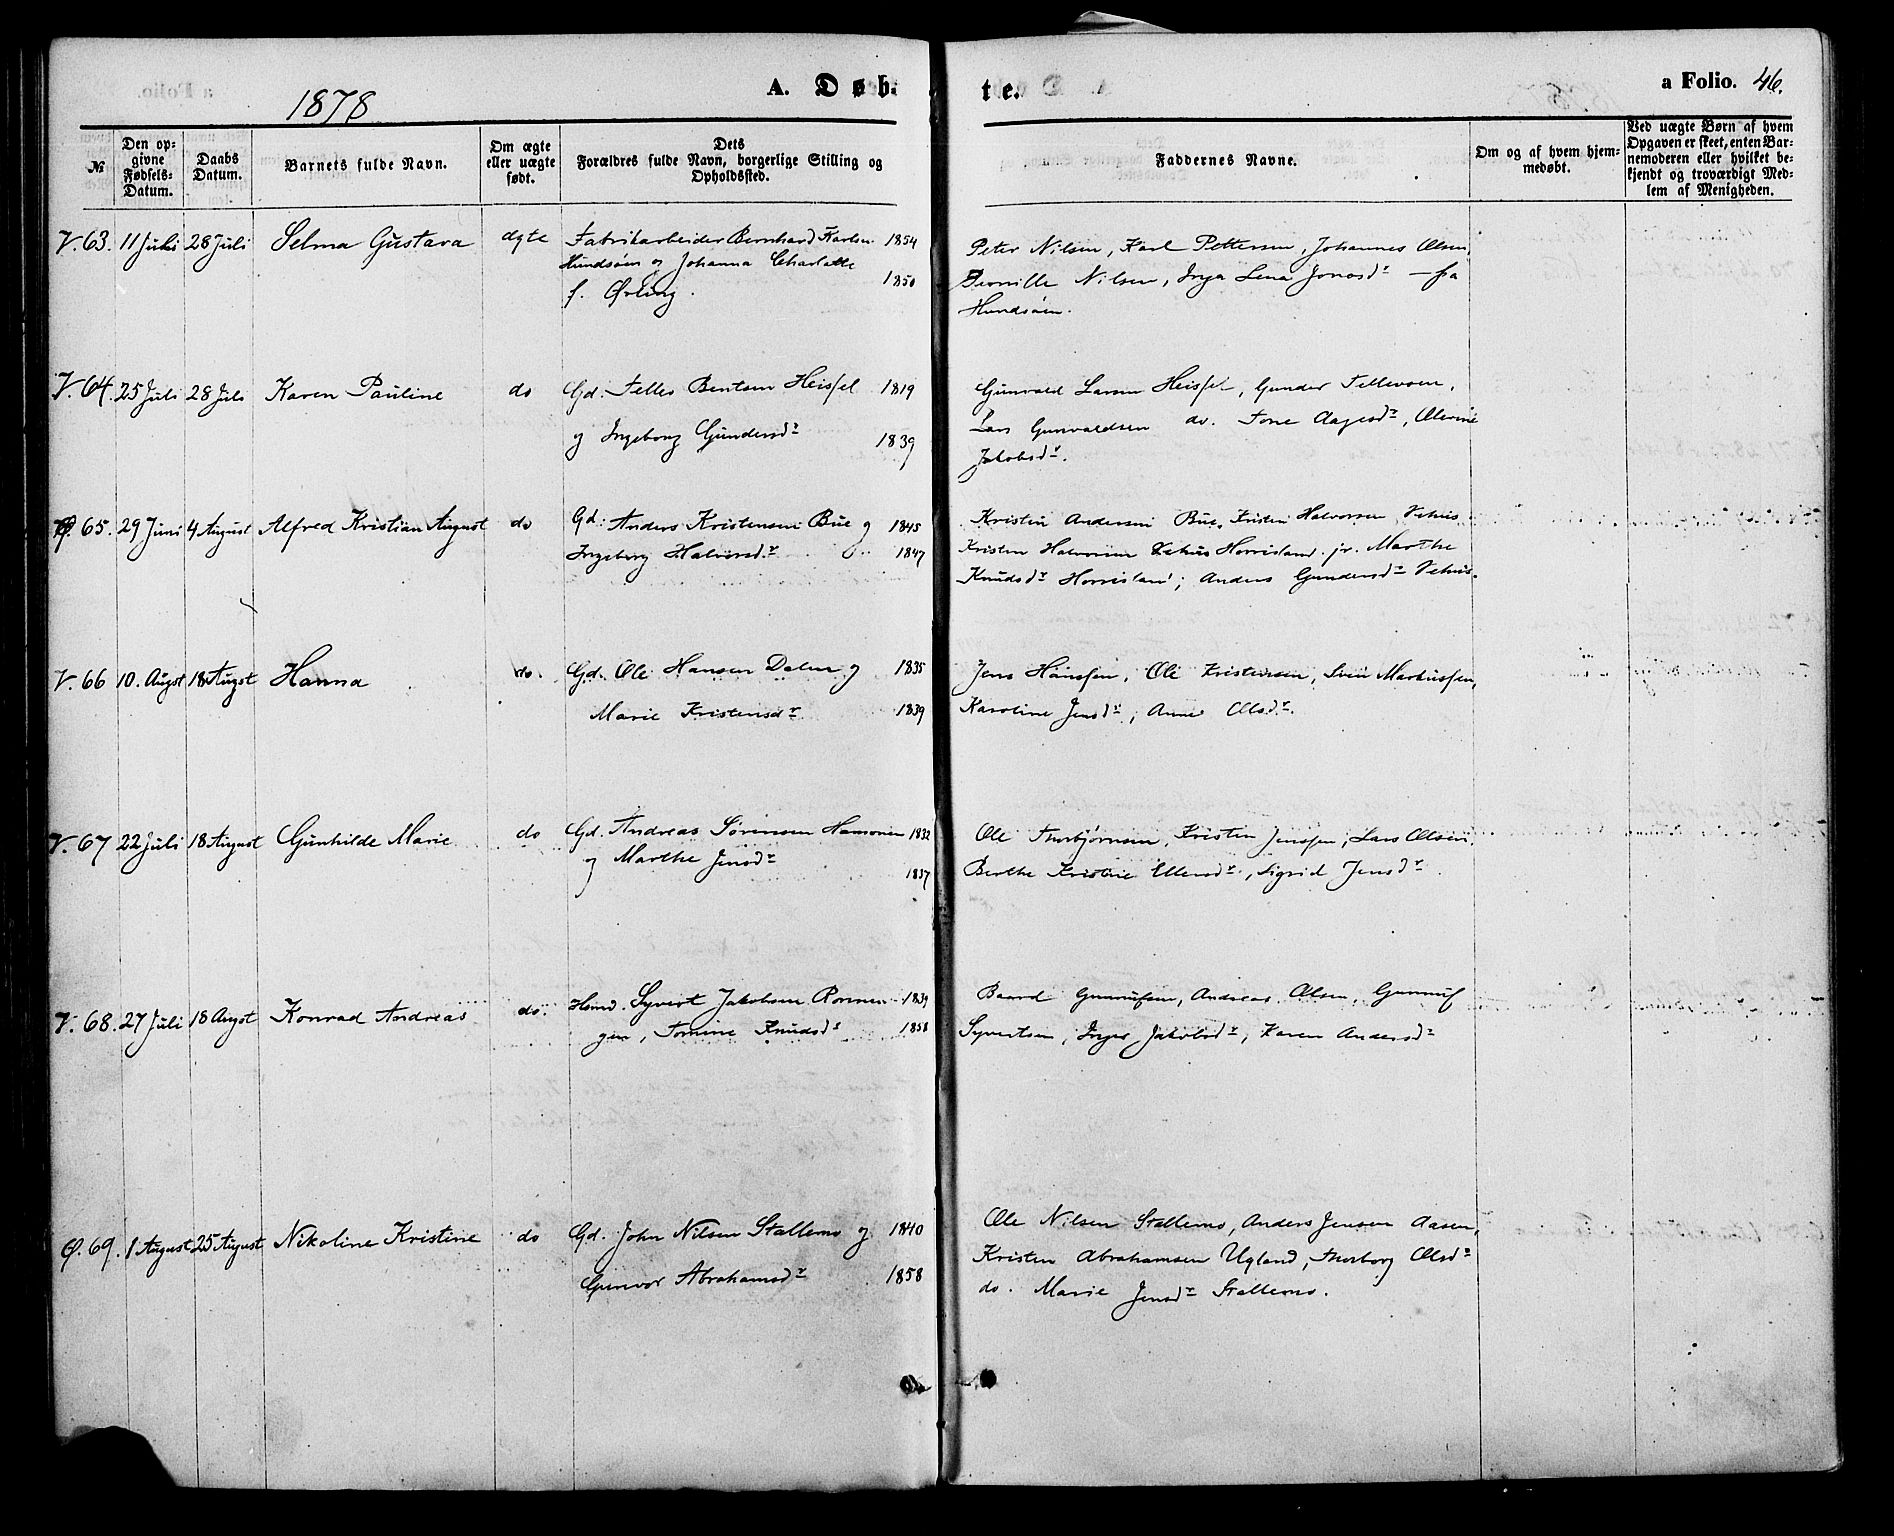 1878
A. Døb-
te.
a Folio. 46.
№
Den op-
givne
Fødsels-
Datum.
Daabs
Datum.
Barnets fulde Navn.
Om ægte
eller uægte
født.
Dets
Forældres fulde Navn, borgerlige Stilling og
Opholdssted.
Faddernes Navne.
Om og af hvem hjem-
medøbt.
Ved uægte Børn af hvem
Opgaven er skeet, enten Bar-
nemoderen eller hvilket be-
kjendt og troværdigt Med-
lem af Menigheden.
V. 63. 11 Juli 28 Juli Selma Gustava ægte Fabrikarbeider Bernhard Karlsen 1854
Hundsøen og Johanna Charlotte
1850
f. Ørling.
Peter Nilsen, Karl Pettersen, Johannes Olsen,
Pernille Nilsen, Inga Lena Jonasdr — fra
Hundsøen.
V. 64. 25 Juli 28 Juli Karen Pauline do Gd. Tellef Bentsen Heisel 1819
og Ingeborg Gundersdr 1839
Gunvald Larsen Heisel, Gunder Tellevsen,
Lars Gunvaldsen do. Tone Aagesdr, Olevine
Jakobsdr.
Ø. 65. 29 Juni 4 August Alfred Kristian August do Gd. Anders Kristensen Bue og 1845
Ingeborg Halvorsdr 1847
Kristen Andersen Bue, Kristen Halvorsen Vehus
Kristen Halvorsen Horrisland jr. Marthe
Knudsdr Horrisland; Anders Gundersdr Vehus.
V. 66 10. Augst 18 Augst Hanna do. Gd. Ole Hansen Dalen og 1835
Marie Kristensdr 1839
Jens Hansen, Ole Kristensen, Svein Markussen,
Karoline Jensdr, Anne Olsdr.
V. 67 22 Juli 18 August Gunhilde Marie do Gd. Andreas Sørensen 1832
og Marthe Jensdr
1837
Ole Thorbjørnsen, Kristen Jenssen, Lars Olsen,
Berthe Kristine Ellensdr, Sigrid Jensdr
V. 68. 27 Juli 18 Augst Konrad Andreas do. Hsmd. Syvert Jakobsen Ronnin 1839
gen, Tomine Knudsdr 1858
Baard Gunnufsen, Andreas Olsen, Gunnuf
Syvertsen, Inger Jakobsdr, Karen Andersdr
Ø. 69. 1 August 25 August Nikoline Kristine do Gd. John Nilsen Stallemo og 1840
Gunvor Abrahamsdr 1858
Ole Nilsen Stallemo, Anders Jensen Aasen,
Kristen Abrahamsen Ugland, Thorborg Olsdr
do. Marie Jensdr Stallemo.